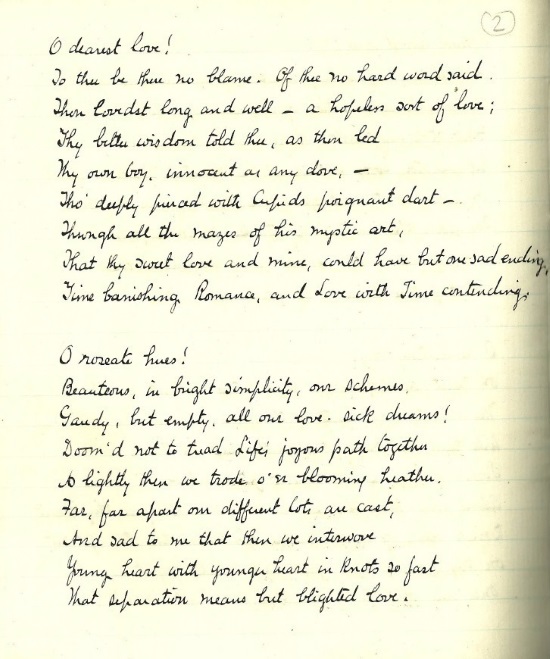 2
O dearest love!
To thee be there no blame. Of thee no hard word said.
Thou lovedst long and well – a hopeless sort of love;
Thy better wisdom told thee, as thou led
Thy own boy, innocent as any dove, –
Tho' deeply pierced with Cupids poignant dart –
Through all the mazes of his mystic art,
That thy sweet love and mine, could have but one sad ending,
Time banishing Romance, and Love with Time contending.
O roseate hues!
Beauteous, in bright simplicity, our schemes,
Gaudy, but empty, all our love-sick dreams!
Doom'd not to tread Life's joyous path together
As lightly then we trode o'er blooming heather.
Far, far apart our different lots are cast,
And sad to me that then we interwove
Young heart with younger heart in knots so fast
That separation means but blighted love.